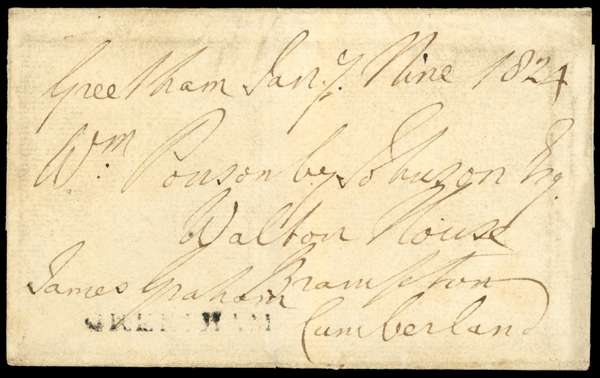 Greetham Jan.y Nine 1824
Wm. Ponsonby Johnson Esq.
Walton House
James Graham Brampton
GREETHAM Cumberland